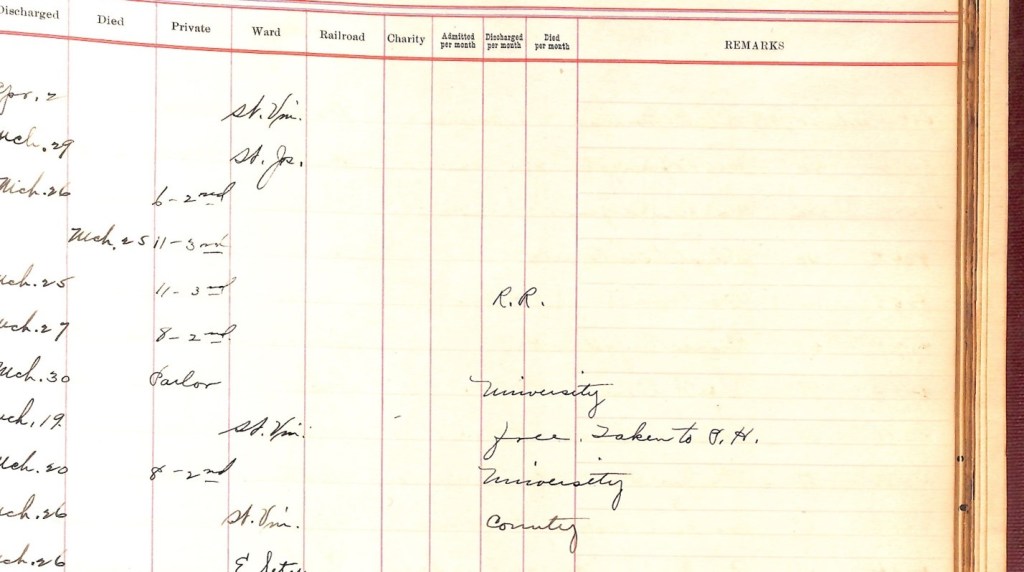 Discharged Died Private Ward Railroad Charity Admitted per month Discharged per month Died per month REMARKS
Apr. 2 St. Vin.
Mch. 29 St. Jos.
Mch. 26 6 - 2nd
Mch. 25 11 - 3rd
Mch. 25 11 - 3rd R.R.
Mch. 27 8 - 2nd
Mch. 30 Parlor University
Mch. 19. St. Vin. free. Taken to P.H.
Mch. 20 8 - 2nd University
Mch. 26 St. Vin. County
Mch. 26